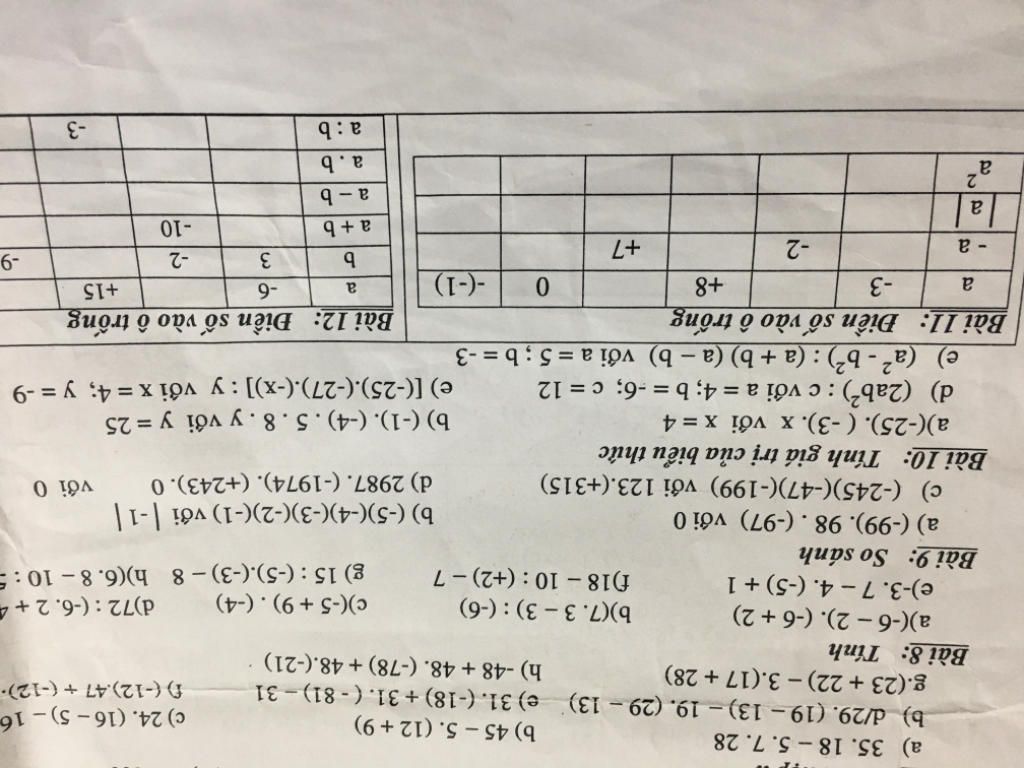 a) 35. 18 – 5. 7. 28 b) 45 – 5. (12 + 9) c) 24. (16 – 5) – 16
b) d/29. (19 – 13) – 19. (29 – 13) e) 31. (-18) + 31. ( - 81) – 31 f) (-12).47 + (-12).
g.(23 + 22) – 3.(17 + 28) h) -48 + 48. (-78) + 48.(-21)
Bài 8: Tính
a)(-6 – 2). (-6 + 2) b)(7. 3 – 3) : (-6) c)(-5 + 9) . (-4) d)72 : (-6. 2 + 4
e)-3. 7 – 4. (-5) + 1 f)18 – 10 : (+2) – 7 g) 15 : (-5).(-3) – 8 h)(6. 8 – 10 : 5
Bài 9: So sánh
a) (-99). 98 . (-97) với 0 b) (-5)(-4)(-3)(-2)(-1) với | -1 |
c) (-245)(-47)(-199) với 123.(+315) d) 2987. (-1974). (+243). 0 với 0
Bài 10: Tính giá trị của biểu thức
a)(-25). ( -3). x với x = 4 b) (-1). (-4) . 5 . 8 . y với y = 25
d) (2ab²) : c với a = 4; b = -6; c = 12 e) [(-25).(-27).(-x)] : y với x = 4; y = -9
e) (a² - b²) : (a + b) (a – b) với a = 5 ; b = -3
Bài 11: Điền số vào ô trống
a -3 +8 0 -(-1)
- a -2 +7
| a |
a²
Bài 12: Điền số vào ô trống
a -6 +15
b 3 -2 -9
a + b -10
a – b
a . b
a : b -3